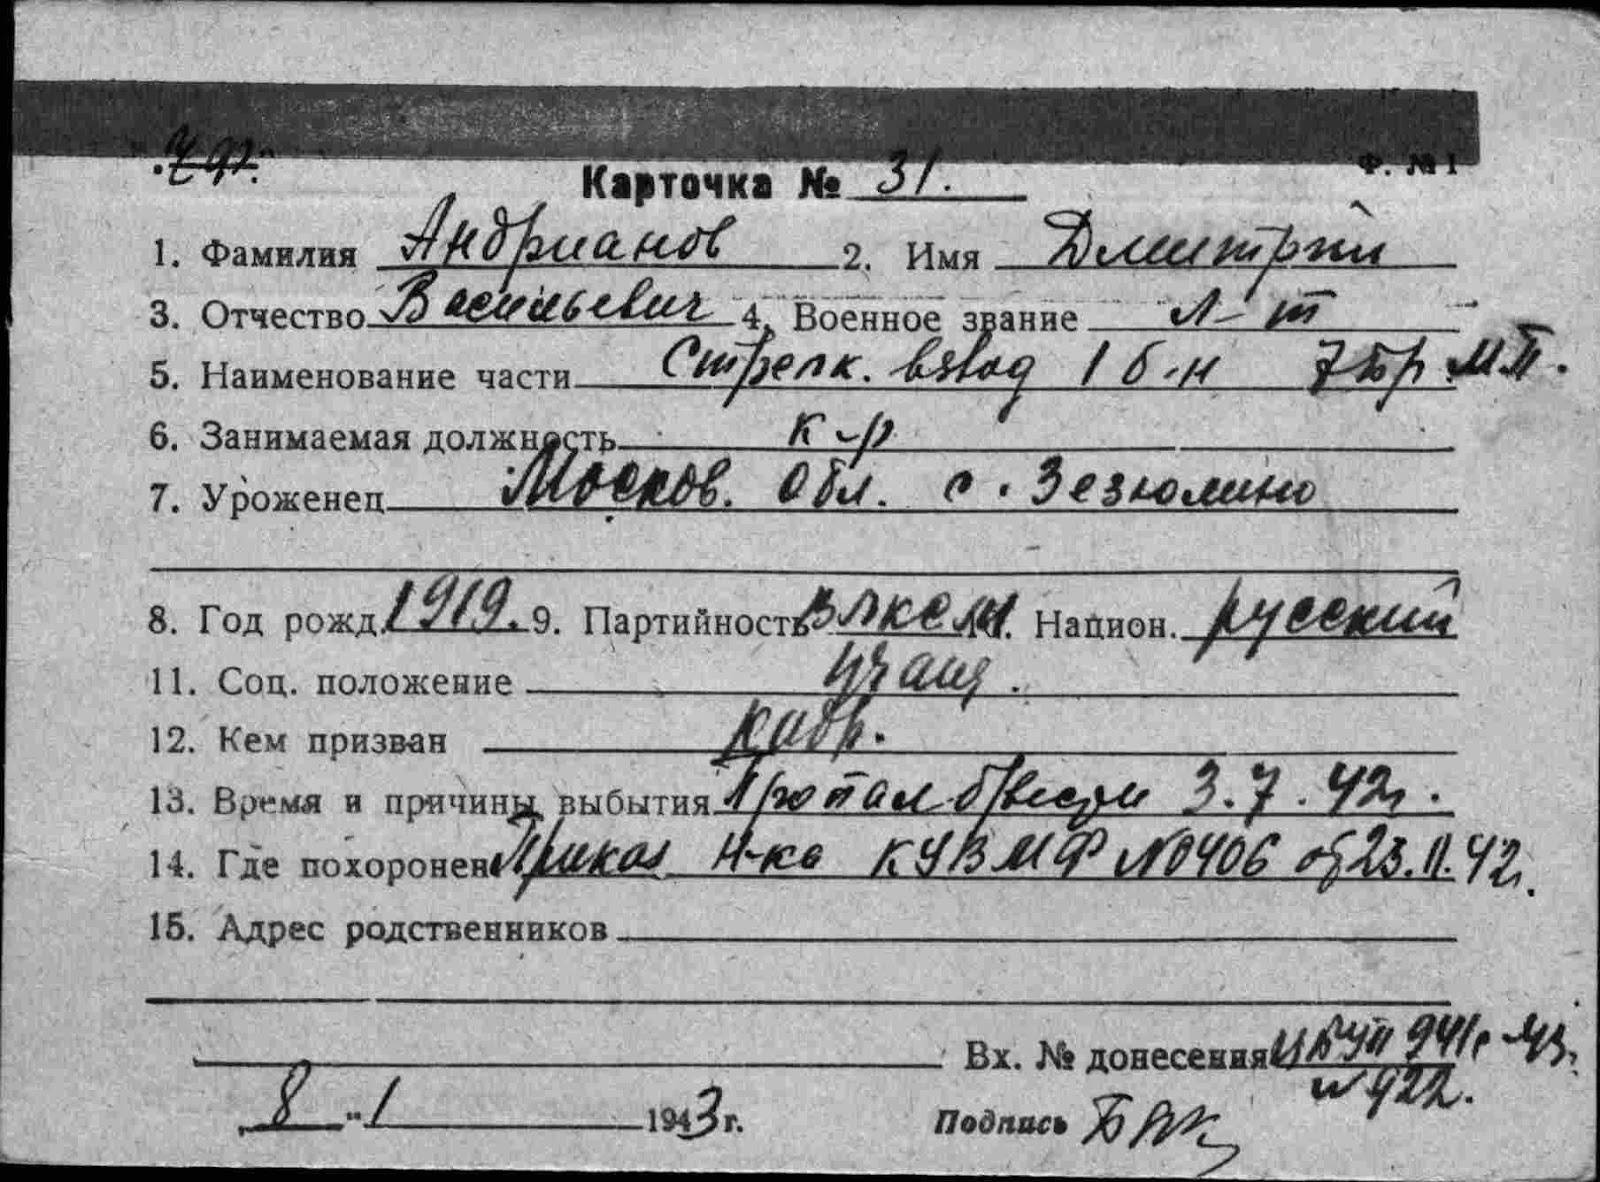 Ф. № 1
Карточка № 31.
1. Фамилия Андрианов 2. Имя Дмитрий
3. Отчество Васильевич 4. Военное звание л-т
5. Наименование части Стрелк. взвод 1 б-н 7 бр. М.П.
6. Занимаемая должность к-р
7. Уроженец Москов. обл. с. Зезюлино
8. Год рожд. 1919. 9. Партийность ВЛКСМ 10. Национ. русский
11. Соц. положение учащ.
12. Кем призван кадр.
13. Время и причины выбытия Пропал б/вести 3.7.42г.
14. Где похоронен Приказ Н-ка КУВМФ №0406 от 23.11.42г.
15. Адрес родственников
Вх. № донесения 941с
№ 922.
8 " 1 1943 г. Подпись